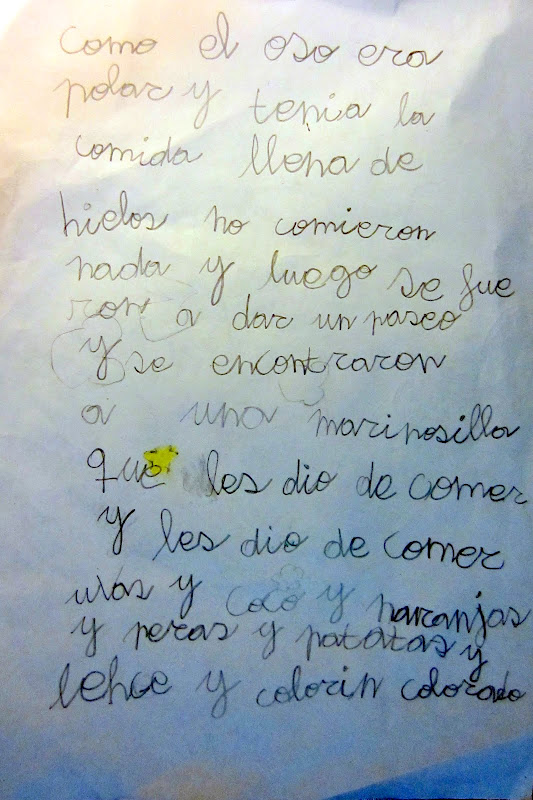 como el oso era
polar y tenia la
comida llena de
hielos no comieron
nada y luego se fue
ron a dar un paseo
y se encontraron
a una mariposilla
que les dio de comer
y les dio de comer
uvas y coco y naranjas
y peras y patatas y
lehce y colorin colorado